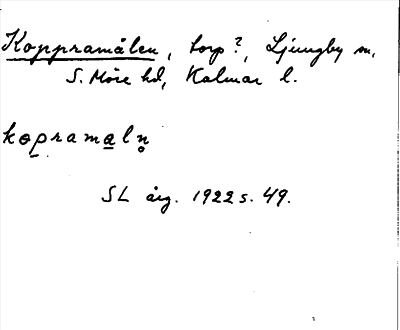 Koppramålen, torp?, Ljungby sn,
S. Möre hd, Kalmar l.
kopramaln̥
SL årg. 1922 s. 49.